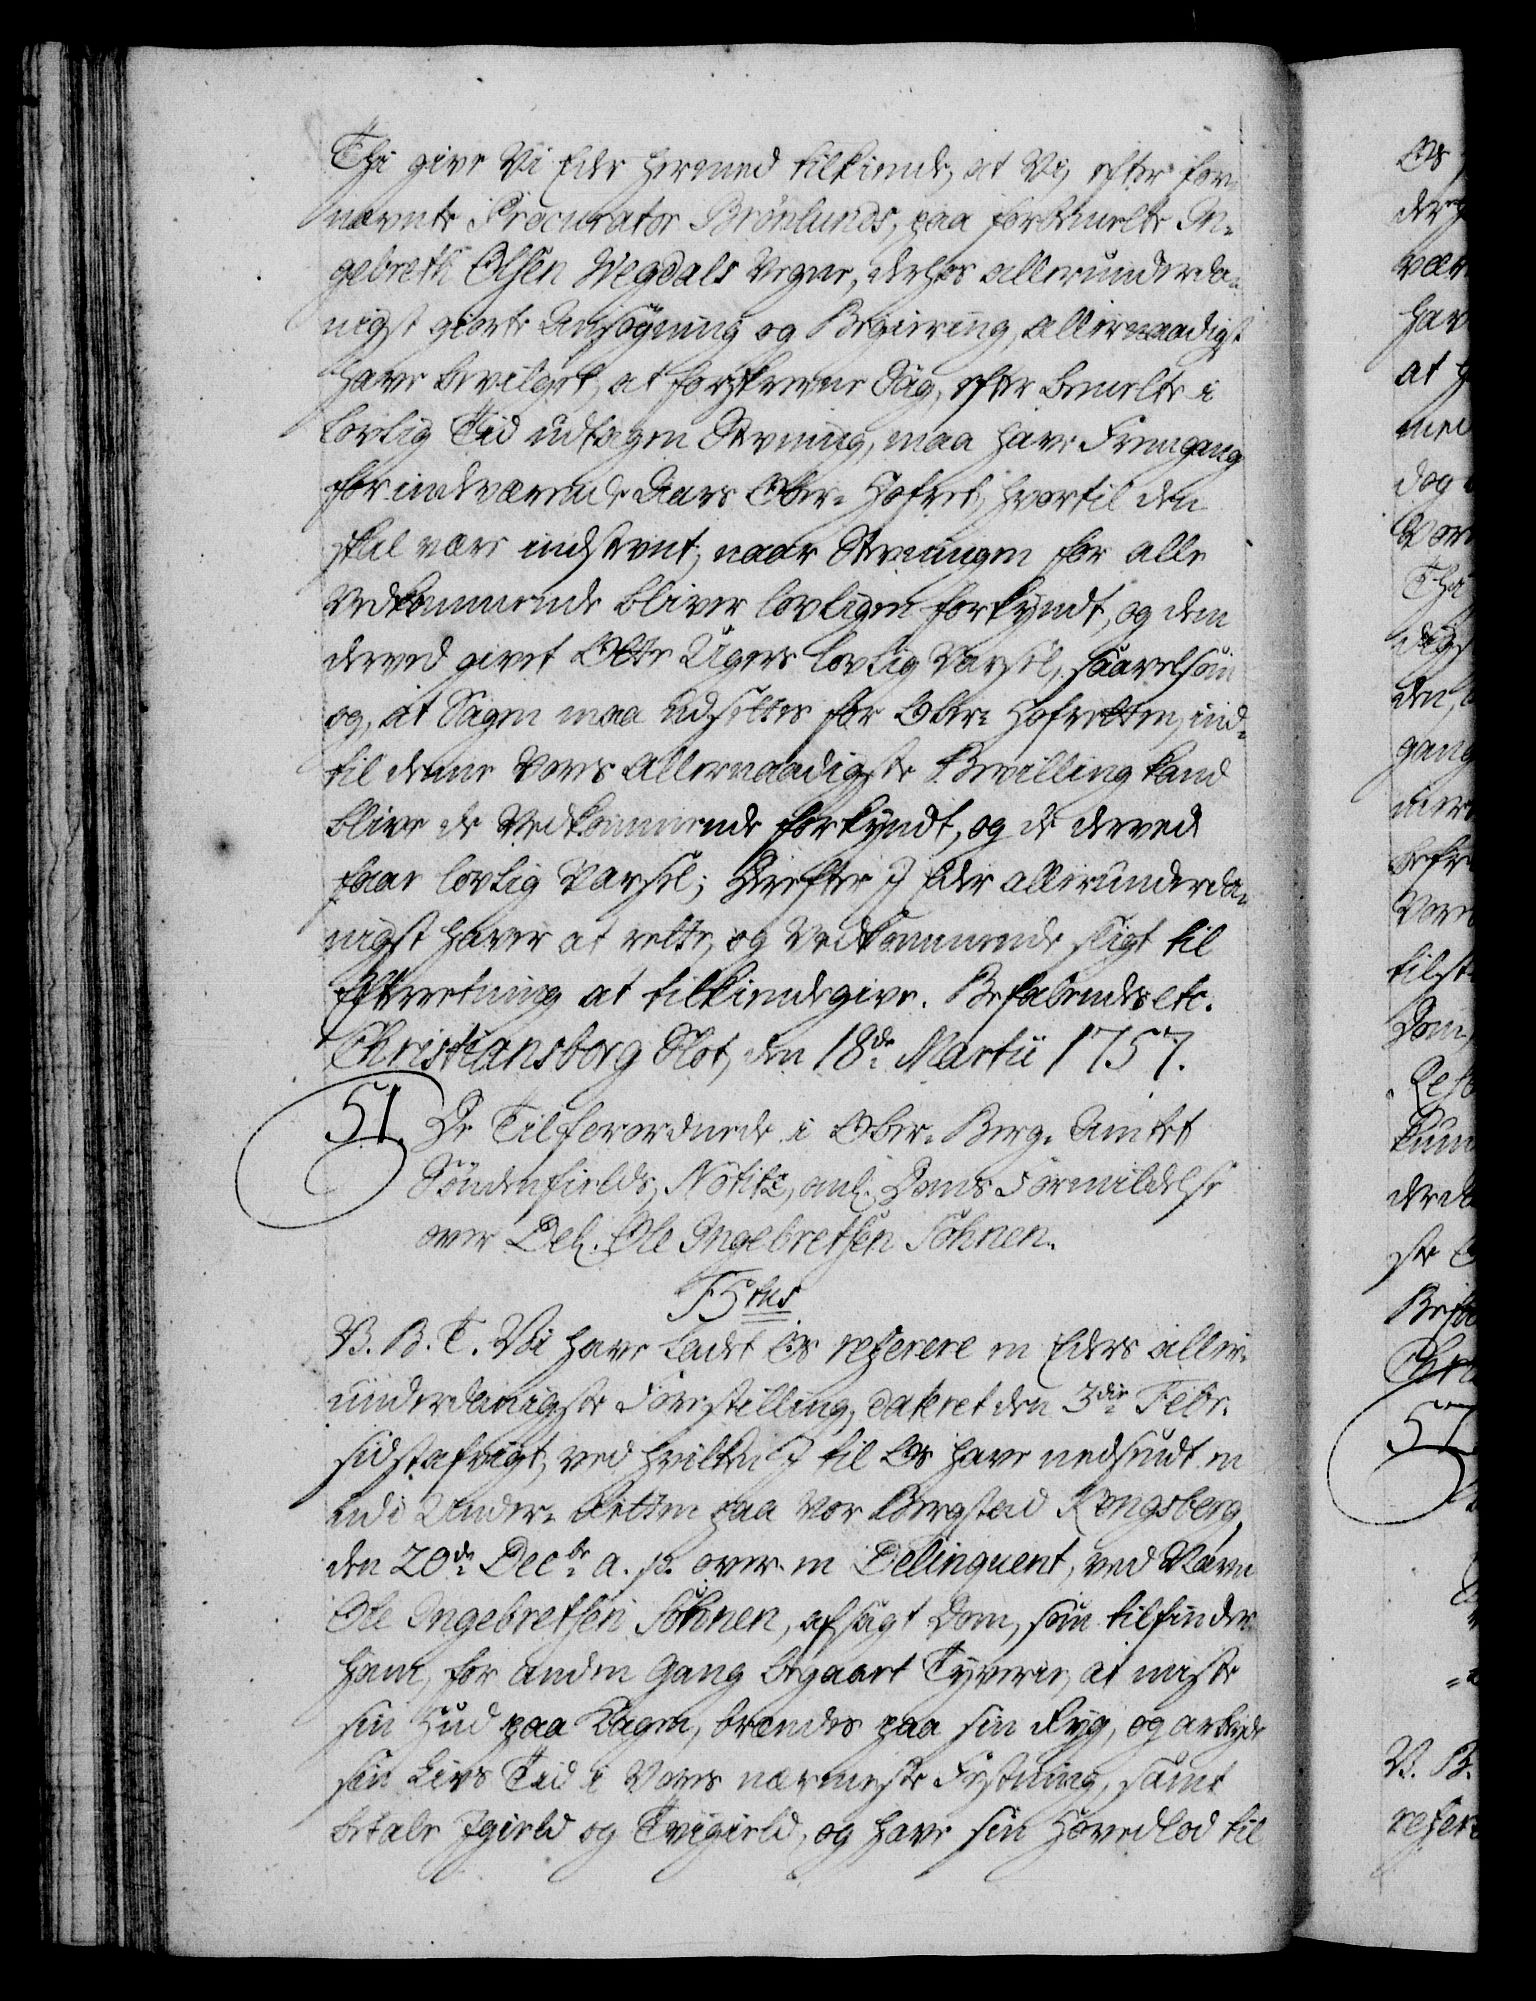 Thi give Vi Eder hermed tilkiende, at Vi, efter for-
nævnte Procurator Brønlunds, paa forbemelte In-
gebreth Olsen Wegdals Vegne, derhos allerunderda-
nigst giorte Ansøgning og Begiering, allernaadigst
have bevilget, at forskrevne Sag, efter bemelte i
lovlig Tid udtagen Stevning, maa have Fremgang
for indeværende Aars Ober-Hofret, hvortil den
skal være indstevnt, naar Stevningen for alle
Vedkommende bliver lovligen forkyndt, og dem
derved givet Otte Ugers lovlig Varsel, saavelsom
og, at Sagen maa udsettes for Ober-Hofretten, ind-
til denne Vores allernaadigste Bevilling kand
blive de Vedkommende forkyndt, og de derved
faae lovlig Varsel; Derefter I Eder allerunderda-
nigst haver at rette, og Vedkommende sligt til
Efterretning at tilkiendegive. Befalendes etc.
Christiansborg Slot, den 18de Martii 1757.
51. De Tilforordnede i Ober-Berg-Amtet
Søndenfields, Notitz, anl. Doms Formildelse
over Del. Ole Ingebretsen Sohnen.
F5tus
V. B. T. Vi have ladet Os referere en Eders aller-
underdanigste Forestilling, dateret den 3die Febr.
sidstafvigt, ved hvilken I til Os have nedsendt en
udi Under-Retten paa Vor Bergstad Kongsberg,
den 20de Decbr a. p. over en Delinquent, ved Navn
Ole Ingebretsen Sohnen, afsagt Dom, som tilfinder
ham, for anden Gang begaaet Tyverie, at miste
sin Hud paa Kagen, brændes paa sin Ryg, og arbeyde
sin Livs Tid i Vores nærmeste Festning, samt
betale Igield og Tvigield, og have sin Hovedlod til